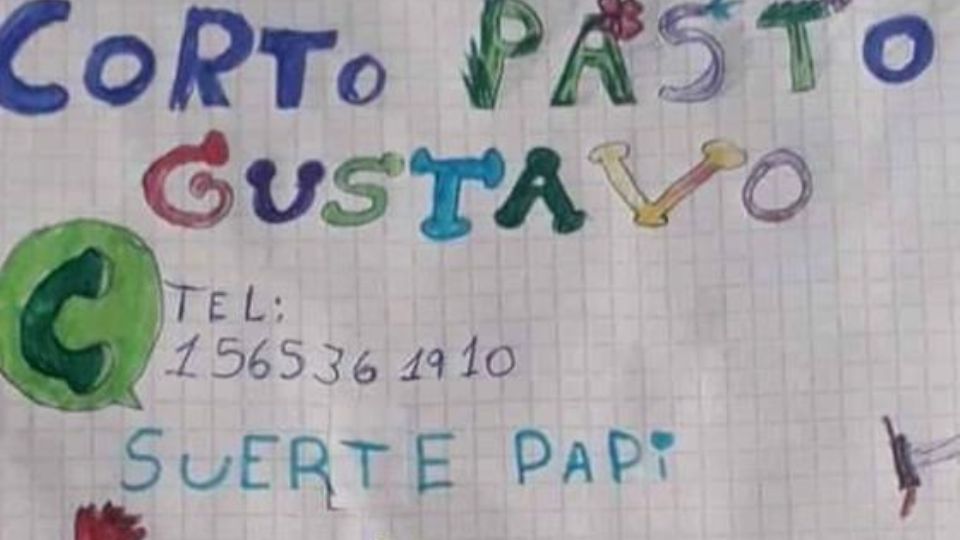 CORTo PASTO
GUSTAVO
TEL:
156536 1910
SUERTE PAPi